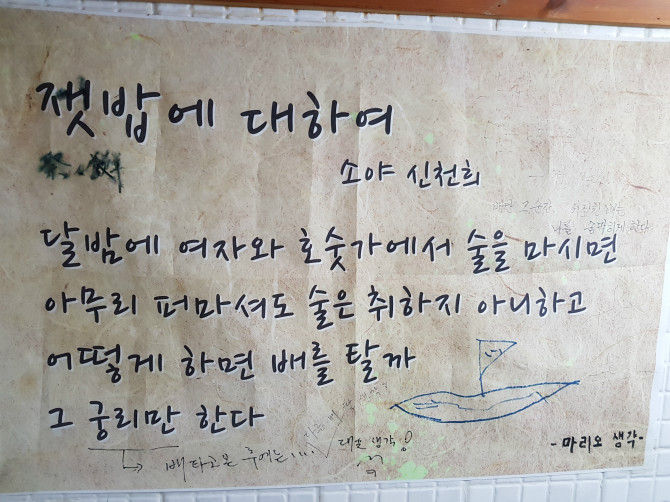 잿밥에 대하여
소야 신천희
달밤에 여자와 호숫가에서 술을 마시면
아무리 퍼마셔도 술은 취하지 아니하고
어떻게 하면 배를 탈까
그 궁리만 한다
배 타고 온 후에는....
- 마리오 생각 -